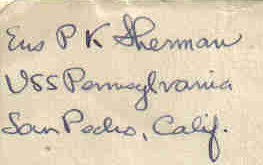 Ens P K Sherman
USS Pennsylvania
San Pedro, Calif.